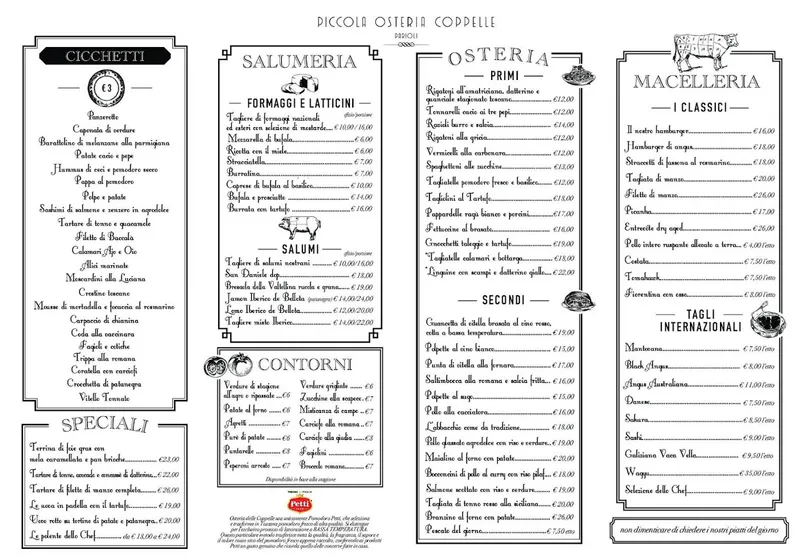 PICCOLA OSTERIA COPPELLE
PARIOLI
CICCHETTI
€3
Panzerotto
Caponata di verdure
Barattolino di melanzane alla parmigiana
Patate cacio e pepe
Hummus di ceci e pomodoro secco
Pappa al pomodoro
Polpo e patate
Sashimi di salmone e zenzero in agrodolce
Tartare di tonno e guacamole
Filetto di Baccalà
Calamari Ajo e Oio
Alici marinate
Moscardini alla Luciana
Crostino toscano
Mousse di mortadella e focaccia al rosmarino
Carpaccio di chianina
Coda alla vaccinara
Fagioli e cotiche
Trippa alla romana
Coratella con carciofi
Crocchetta di patanegra
Vitello Tonnato
SPECIALI
Terrina di foie gras con
mela caramellata e pan brioche €23,00
Tartare di tonno, avocado e emmental di datterino €22,00
Tartare di filetto di manzo completa €26,00
Le uova in padella con il tartufo €19,00
Uovo rotto su tortino di patate e patanegra €20,00
Le polente dello Chef da €18,00 a €24,00
SALUMERIA
FORMAGGI E LATTICINI
sfizio/porzione
Tagliere di formaggi nazionali
ed esteri con selezione di mostarde €10,00 /16,00
Mozzarella di bufala €6,00
Ricotta con il miele €6,00
Stracciatella €7,00
Burratina €7,00
Caprese di bufala al basilico €10,00
Bufala e prosciutto €14,00
Burrata con tartufo €16,00
SALUMI
sfizio/porzione
Tagliere di salumi nostrani €10,00/16,00
San Daniele dop €18,00
Bresaola della Valtellina rucola e grana €19,00
Jamon Iberico de Bellota (patanegra) €14,00/24,00
Lomo Iberico de Bellota €12,00/20,00
Tagliere misto Iberico €14,00/22,00
CONTORNI
Verdure di stagione
all'agro e ripassate €6
Patate al forno €6
Agretti €7
Purè di patate €6
Puntarelle €8
Peperoni arrosto €7
Verdure grigliate €6
Zucchine alla scapece €7
Misticanza di campo €7
Carciofo alla romana €7
Carciofo alla giudia €8
Fagiolini €6
Broccolo romano €7
Disponibilità in base alla stagione
Petti
Osteria delle Coppelle usa unicamente Pomodoro Petti, che seleziona
e trasforma in Toscana pomodoro fresco di alta qualità. Si distingue
per l'esclusivo processo di lavorazione a BASSA TEMPERATURA.
Questo particolare metodo trasferisce nota la qualità, la fragranza, il sapore e
il colore rosso vivo del pomodoro, fresco appena raccolto, conferendo ai prodotti
Petti un gusto genuino che ricorda quello delle conserve fatte in casa.
OSTERIA
PRIMI
Rigatoni all'amatriciana, datterino e
guanciale stagionato toscano €12,00
Tonnarelli cacio ai tre pepi €12,00
Ravioli burro e salvia €14,00
Rigatoni alla gricia €12,00
Vermicelli alla carbonara €12,00
Spaghettoni alle zucchine €13,00
Tagliatelle pomodoro fresco e basilico €12,00
Tagliolini al Tartufo €18,00
Pappardelle ragù bianco e porcini €17,00
Fettuccine al brasato €16,00
Gnocchetti taleggio e tartufo €19,00
*Tagliatelle calamari e bottarga €18,00
*Linguine con scampi e datterino giallo €22,00
SECONDI
Guancetta di vitella brasata al vino rosso,
cotta a bassa temperatura €19,00
Polpette al vino bianco €15,00
Punta di vitella alla fornara €17,00
Saltimbocca alla romana e salvia fritta €16,00
Polpette al sugo €15,00
Pollo alla cacciatora €16,00
L'abbacchio come da tradizione €18,00
Pollo glassato agrodolce con riso e verdure €19,00
Maialino al forno con patate €20,00
Bocconcini di pollo al curry con riso pilaf €18,00
Salmone scottato con riso e verdure €19,00
Tagliata di tonno rosso alla siciliana €20,00
Branzino al forno con patate €26,00
Pescato del giorno €7,50 etto
MACELLERIA
I CLASSICI
Il nostro hamburger €16,00
Hamburger di angus €18,00
Straccetti di fassona al rosmarino €18,00
Tagliata di manzo €20,00
Filetto di manzo €26,00
Picanha €17,00
Entrecôte dry aged €26,00
Pollo intero ruspante allevato a terra €4,00 l'etto
Costata €7,50 l'etto
Tomahawk €7,50 l'etto
Fiorentina con osso €8,00 l'etto
TAGLI
INTERNAZIONALI
Mantovana €7,50 l'etto
Black Angus €8,00 l'etto
Angus Australiana €11,00 l'etto
Danese €7,50 l'etto
Sakura €8,50 l'etto
Sashi €9,00 l'etto
Galiziana Vaca Vella €9,50 l'etto
Wagyu €35,00 l'etto
Selezione dello Chef €9,00 l'etto
non dimenticare di chiedere i nostri piatti del giorno